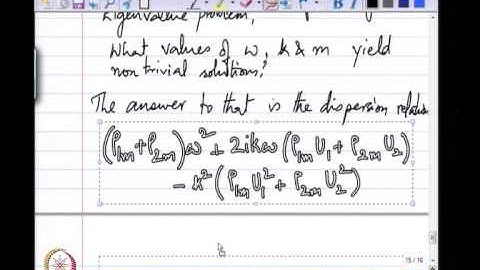 Eigenvalue problem,
What values of ω, k & m yield
non trivial solutions?
The answer to that is the dispersion relation
(ρ1m+ρ2m)ω² + 2ikω(ρ1m U1 + ρ2m U2)
- k²(ρ1m U1² + ρ2m U2²)
15 / 16